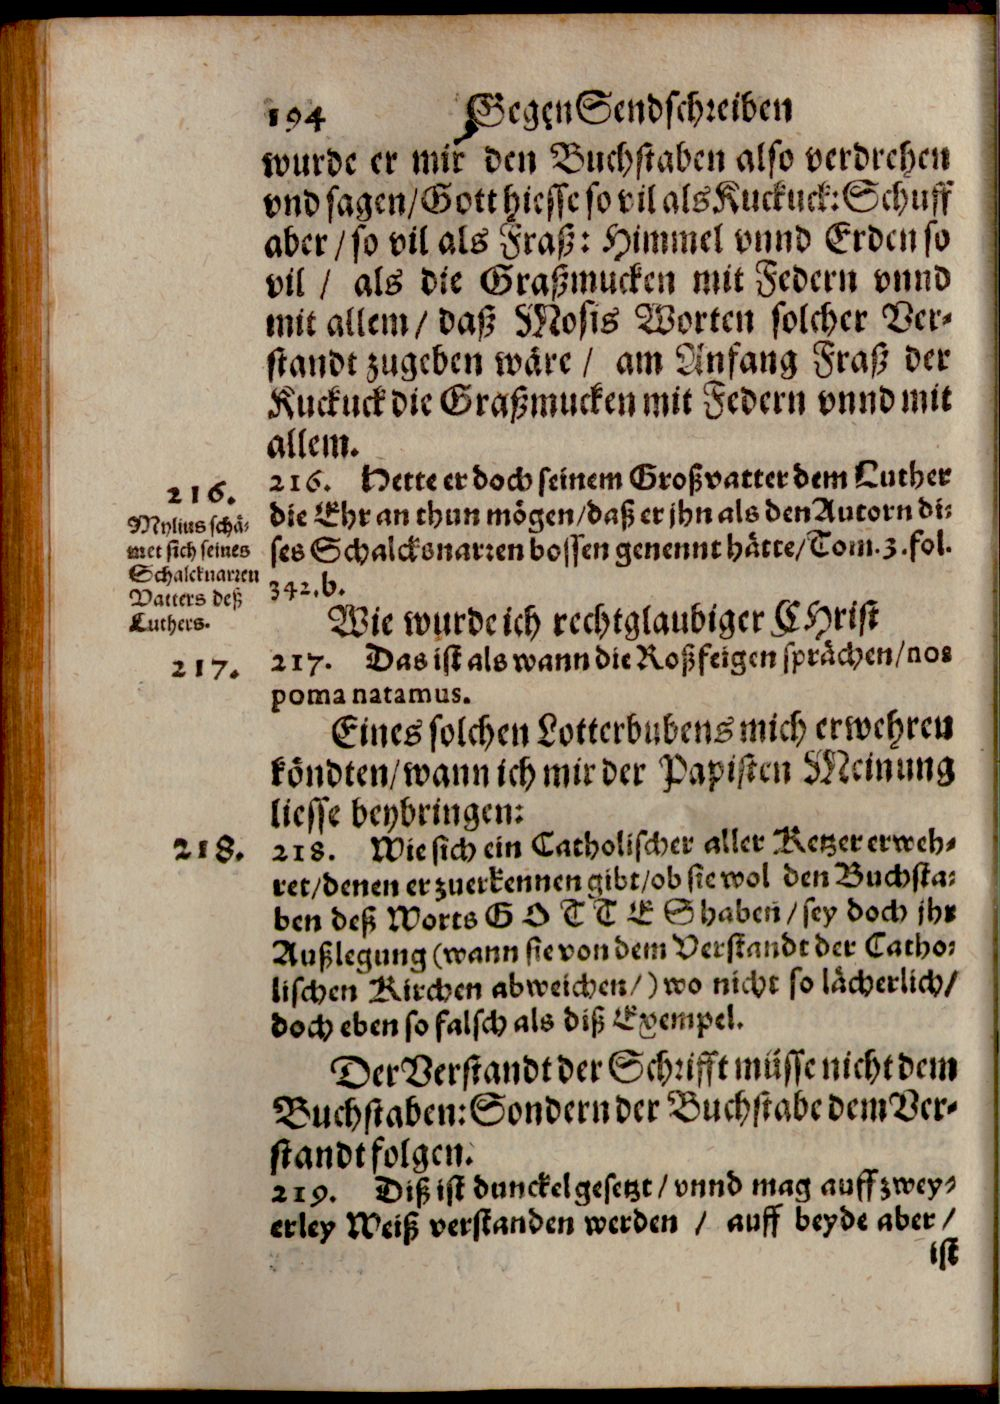 194 Gegen Sendschreiben
wurde er mir den Buchstaben also verdrehen
vnd sagen/Gott hiesse so vil als Kuckuck: Schuff
aber/so vil als Fraß: Himmel vnnd Erden so
vil / als die Graßmucken mit Federn vnnd
mit allem/ daß Mosis Worten solcher Ver-
standt zugeben wäre / am Anfang Fraß der
Kuckuck die Graßmucken mit Federn vnnd mit
allem.
216.
Mylius schä-
met sich seines
Schalcknarren
Vatters deß
Luthers.
216. Hette er doch seinem Großvatter dem Luther
die Ehr an thun mögen/daß er jhn als den Autorn di-
ses Schalcksnarren bossen genennt hätte/Tom.3.fol.
342.b.
Wie wurde ich rechtglaubiger CHrist
217.
217. Das ist als wann die Roßfeigen sprächen/nos
poma natamus.
Eines solchen Lotterbubens mich erwehren
köndten/wann ich mir der Papisten Meinung
liesse beybringen:
218.
218. Wie sich ein Catholischer aller Ketzer erweh-
ret/denen er zuerkennen gibt/ob sie wol den Buchsta-
ben deß Worts G O T T E S haben/sey doch jhr
Außlegung (wann sie von dem Verstandt der Catho-
lischen Kirchen abweichen/) wo nicht so lächerlich/
doch eben so falsch als diß Exempel.
Der Verstandt der Schrifft müsse nicht dem
Buchstaben: Sondern der Buchstabe dem Ver-
standt folgen.
219. Diß ist dunckel gesetzt/vnnd mag auff zwey-
erley Weiß verstanden werden / auff beyde aber/
ist